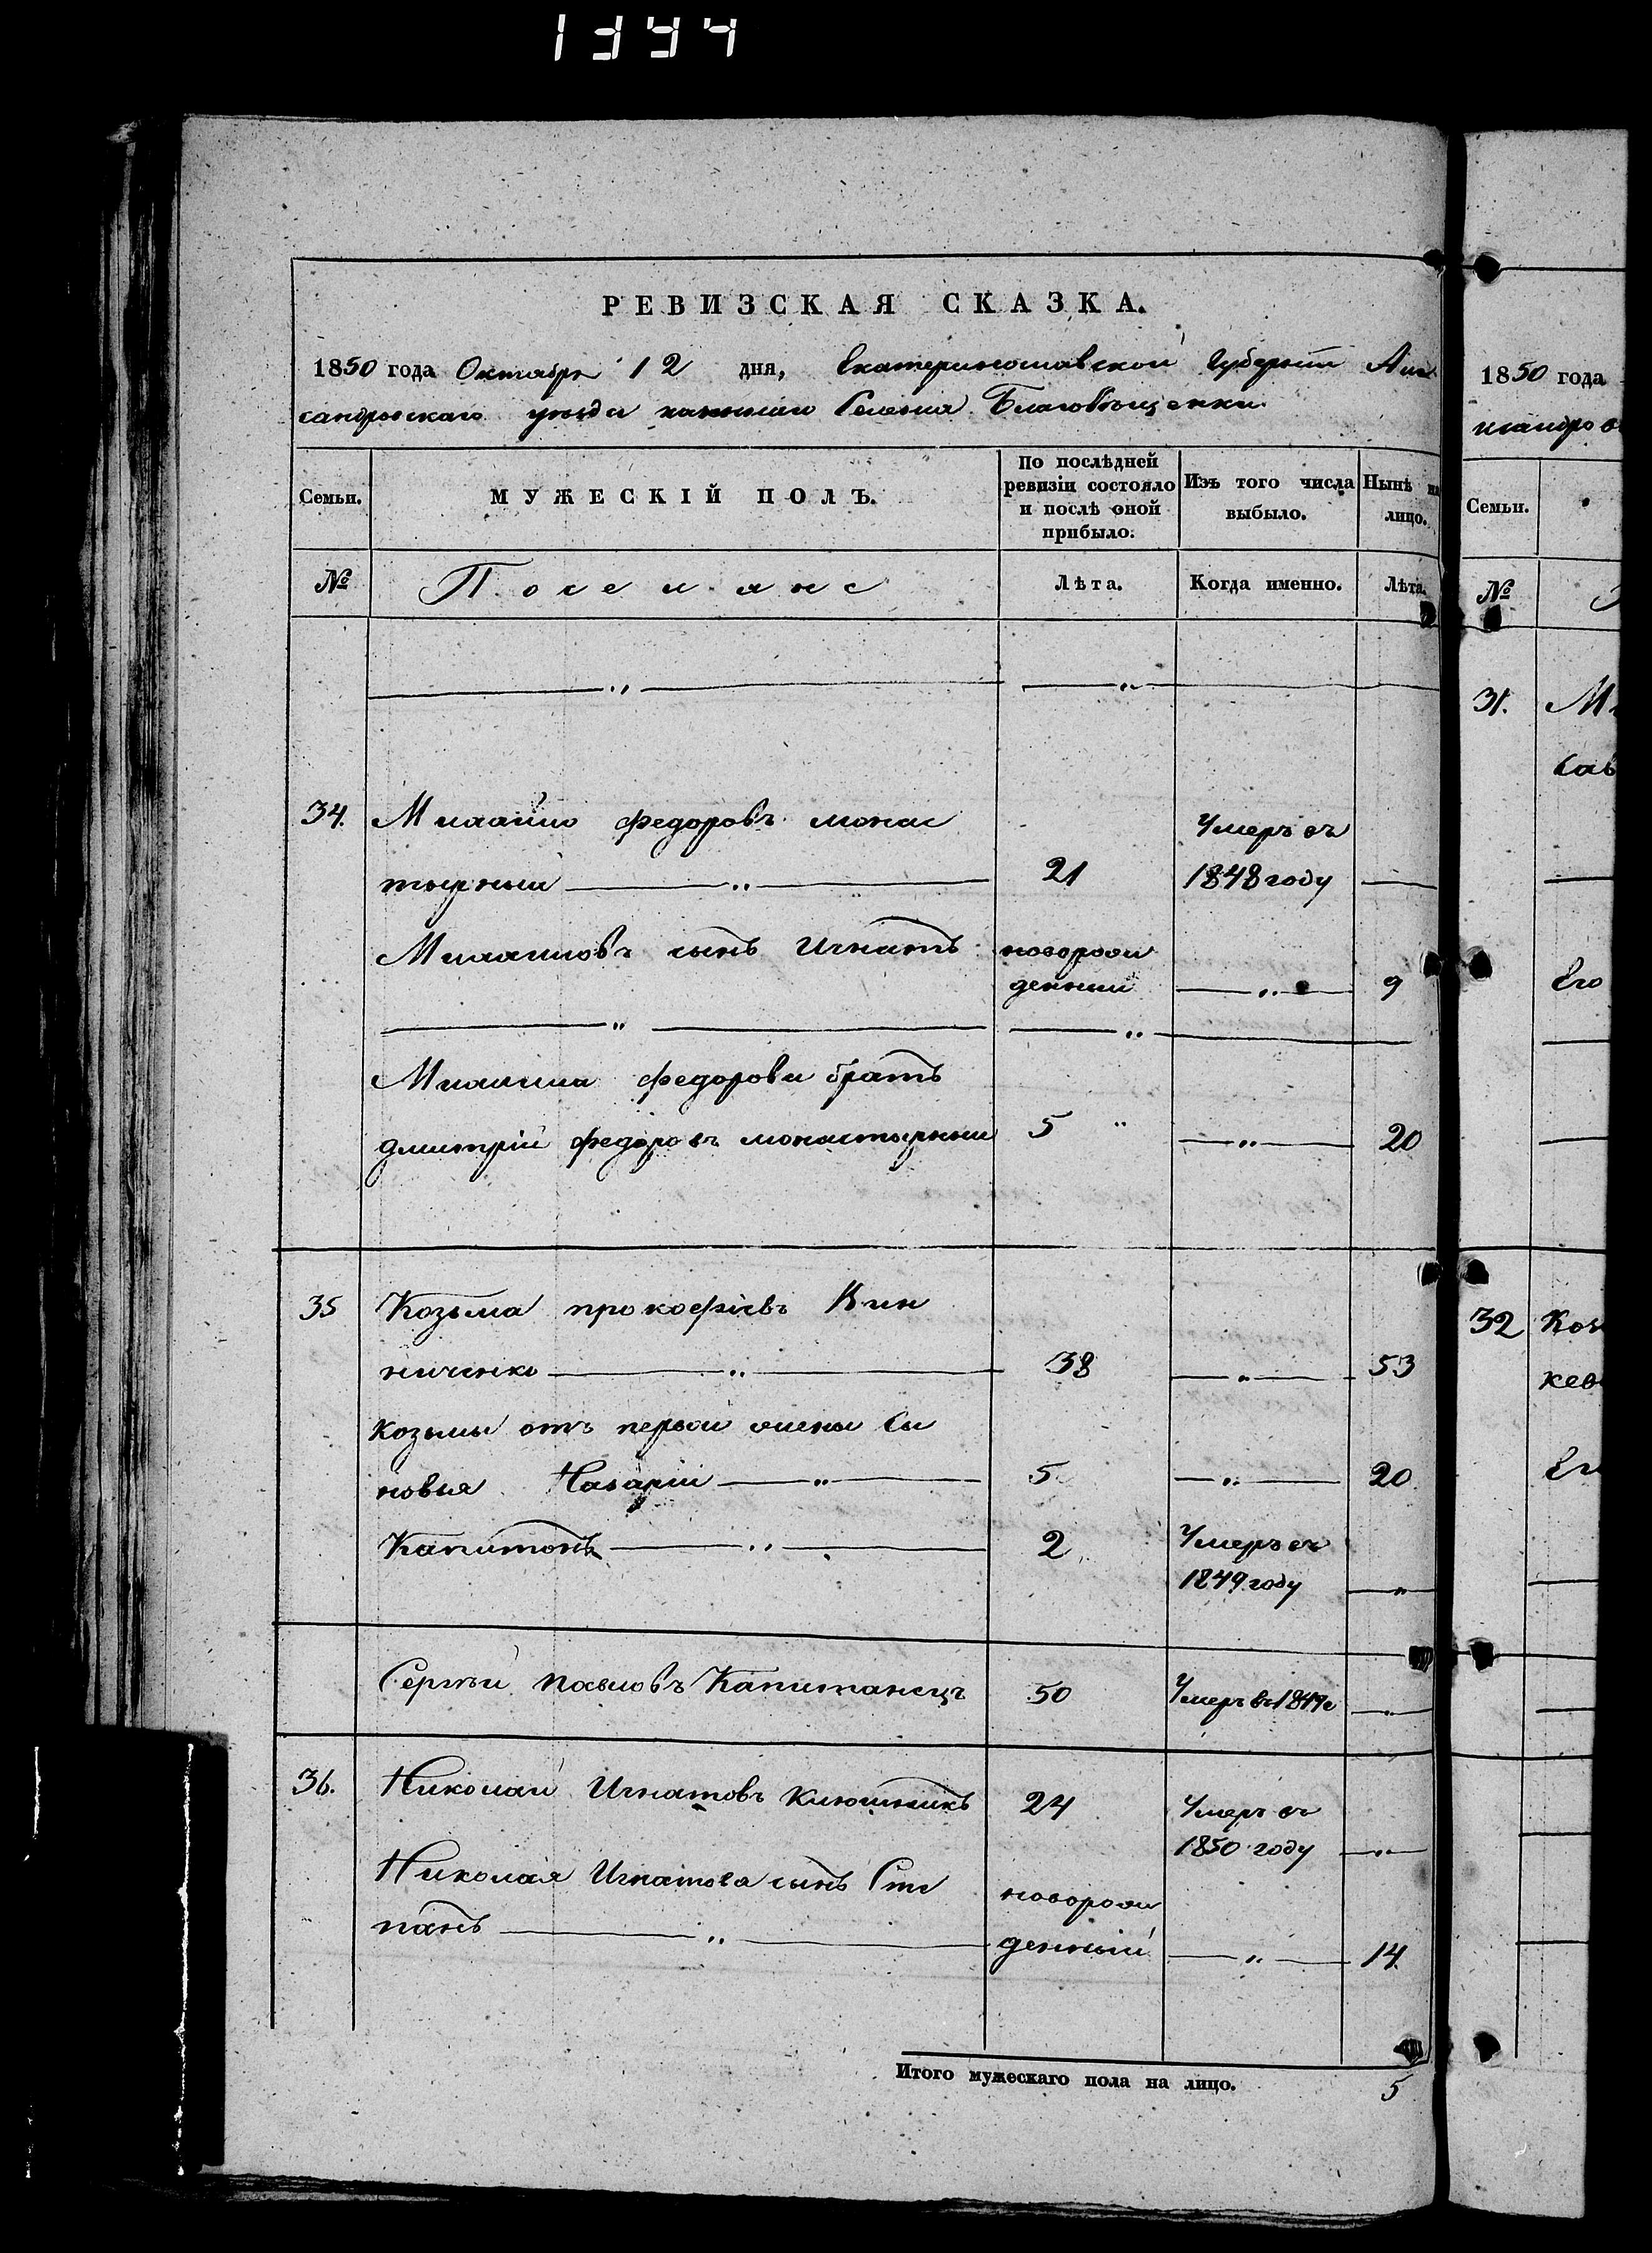 1344
РЕВИЗСКАЯ СКАЗКА.
1850 года Октября 12 дня, Екатеринославской Губерніи Алек
сандровскаго уезда казеннаи Селенія Благовѣщенки
Семьи.
МУЖЕСКІЙ ПОЛЪ.
По послѣдней
ревизіи состояло
и послѣ оной
прибыло.
Изъ того числа
выбыло.
Нынѣ на
лицо.
№
Поселяне
Лѣта.
Когда именно.
Лѣта.
34. Михайло федоровъ монас Умеръ въ
тырный 21 1848 году
Михайловъ сынъ Игнатъ новорож
денный 9
Михайла федорова братъ
дмитрій федоровъ монастырный 5 20
35 Козьма прокофіевъ Вин
ниченко 38 53
Козьмы отъ первой жены Сы
новья Назарій 5 20
Капитонъ 2 Умеръ въ
1849 году
Сергѣй павловъ Капитанецъ 50 Умеръ въ 1849 г
36. Николай Игнатовъ Клюшникъ 24 Умеръ въ
1850 году
Николая Игнатова сынъ Сте новорож
панъ денный 14
Итого мужескаго пола на лицо. 5
1850 года
ксандров
Семьи.
№
31.
Его
32